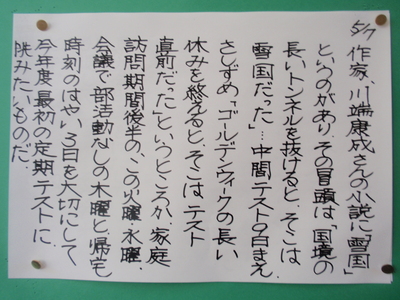 5/7 作家、川端康成さんの小説に「雪国」
というのがあり、その冒頭は「国境の
長いトンネルを抜けると、そこは
雪国だった」…中間テスト9日まえ。
さしずめ「ゴールデンウィークの長い
休みを終えると、そこはテスト
直前だった」というところか。家庭
訪問期間後半の、この火曜、水曜、
会議で部活動なしの木曜と、帰宅
時刻のはやい3日を大切にして
今年度最初の定期テストに、
挑みたいものだ。